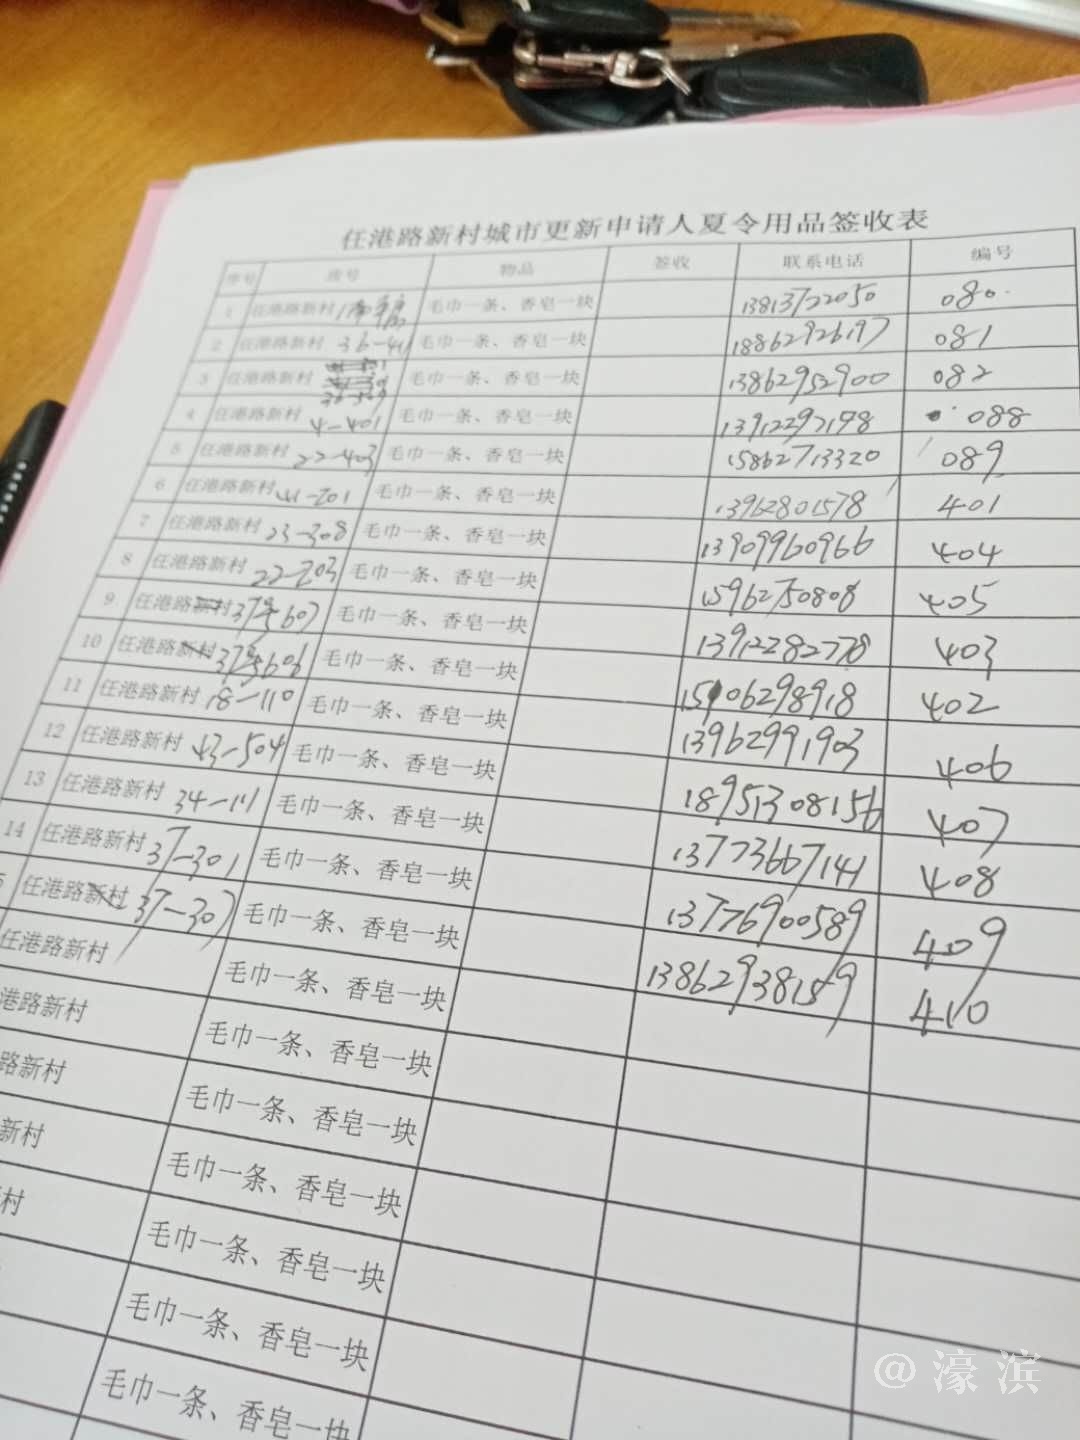 任港路新村城市更新申请人夏令用品签收表
序号 房号 物品 签收 联系电话 编号
1 任港路新村 毛巾一条、香皂一块 13813722050 080
2 任港路新村 36-401 毛巾一条、香皂一块 18862926197 081
3 任港路新村 毛巾一条、香皂一块 13862952900 082
4 任港路新村 4-401 毛巾一条、香皂一块 13912297198 088
5 任港路新村 22-403 毛巾一条、香皂一块 15862713320 089
6 任港路新村 41-201 毛巾一条、香皂一块 13962801578 401
7 任港路新村 23-308 毛巾一条、香皂一块 13909960966 404
8 任港路新村 22-203 毛巾一条、香皂一块 15962750808 405
9 任港路新村 37号607 毛巾一条、香皂一块 13912282778 403
10 任港路新村 37号606 毛巾一条、香皂一块 15906298918 402
11 任港路新村 18-110 毛巾一条、香皂一块 13962991903 406
12 任港路新村 43-504 毛巾一条、香皂一块 18951308156 407
13 任港路新村 34-111 毛巾一条、香皂一块 13773667141 408
14 任港路新村 37-301 毛巾一条、香皂一块 13776900589 409
5 任港路新村 37-307 毛巾一条、香皂一块 13862938159 410
任港路新村 毛巾一条、香皂一块
港路新村 毛巾一条、香皂一块
路新村 毛巾一条、香皂一块
新村 毛巾一条、香皂一块
村 毛巾一条、香皂一块
毛巾一条、香皂一块
毛巾一条、香皂一块
@濠滨